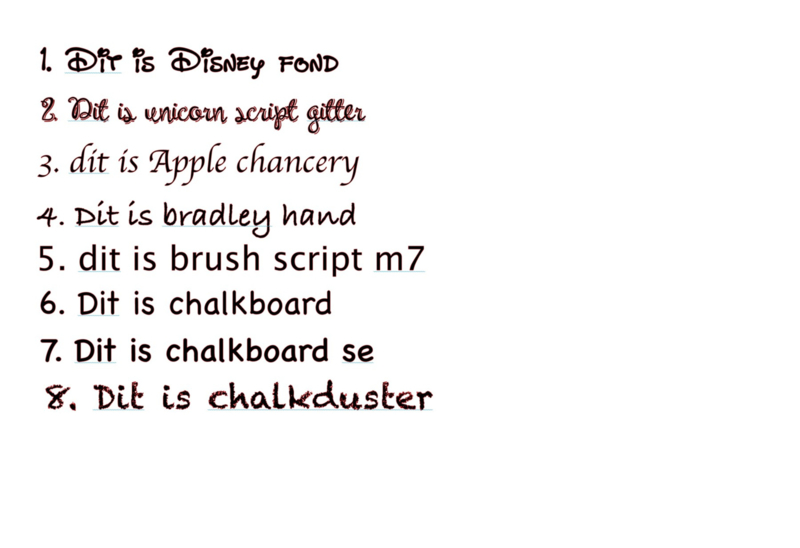 1. Dit is Disney fond
2. Dit is unicorn script gitter
3. dit is Apple chancery
4. Dit is bradley hand
5. dit is brush script m7
6. Dit is chalkboard
7. Dit is chalkboard se
8. Dit is chalkduster